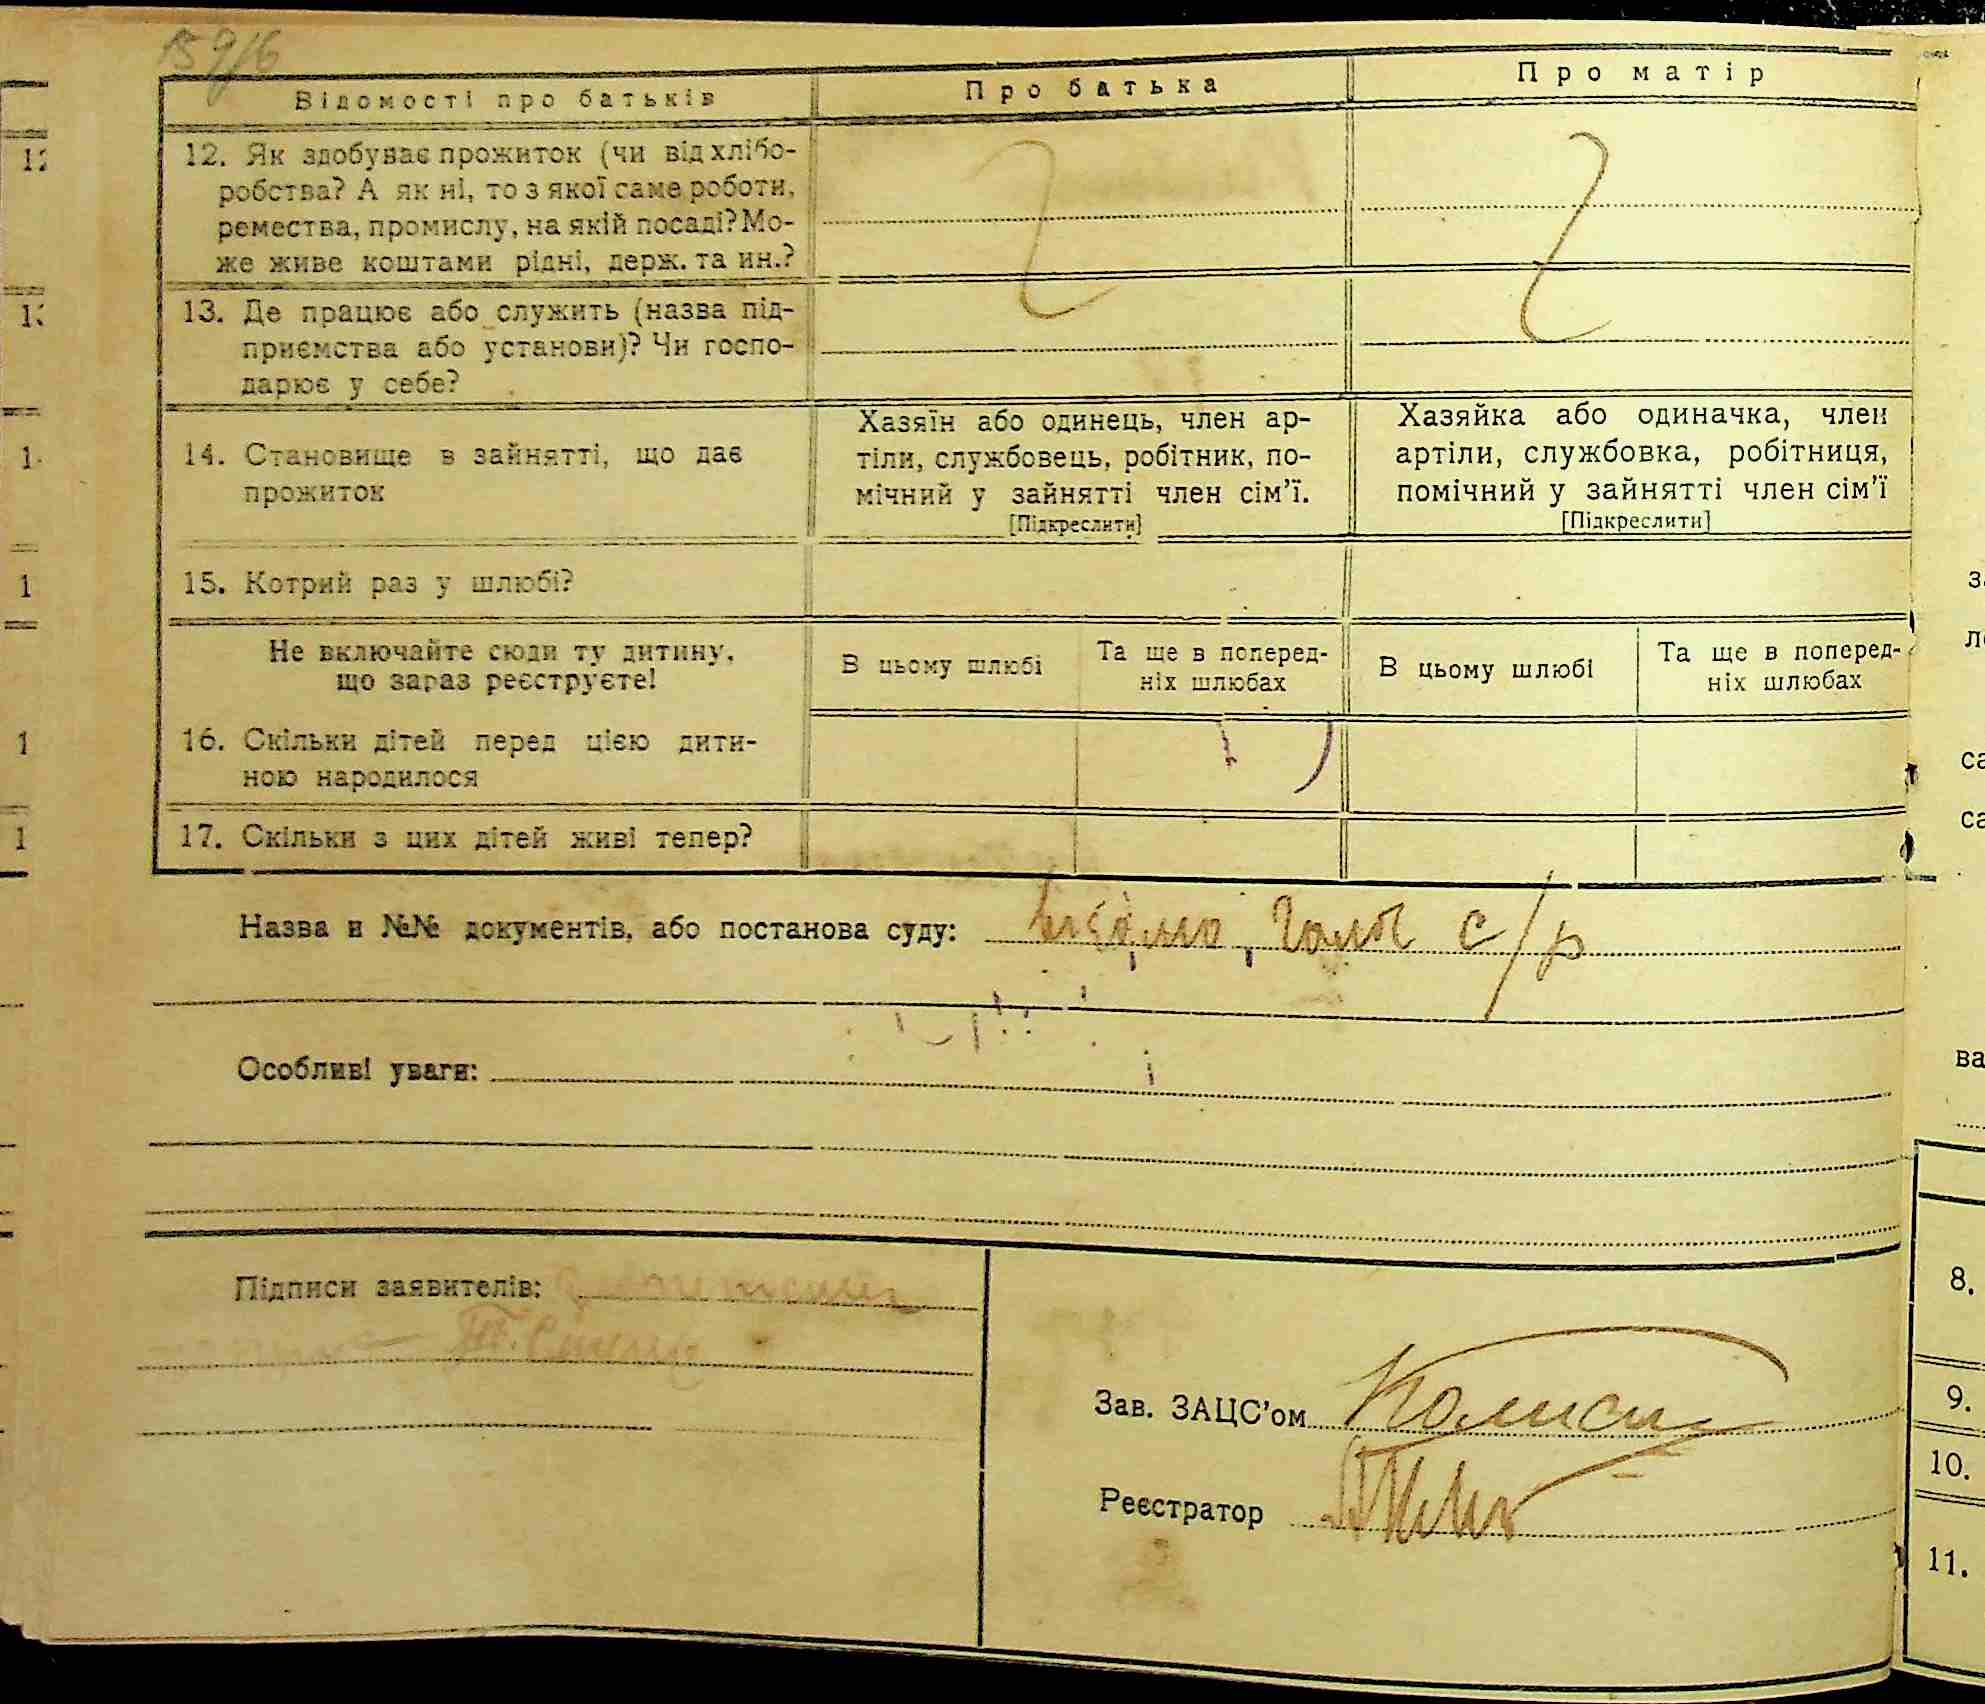 Відомості про батьків
Про батька
Про матір
12. Як здобуває прожиток (чи від хлібо-
робства? А як ні, то з якої саме роботи,
ремества, промислу, на якій посаді? Мо-
же живе коштами рідні, держ. та ин.?
13. Де працює або служить (назва під-
приємства або установи)? Чи госпо-
дарює у себе?
14. Становище в зайнятті, що дає
прожиток
Хазяїн або одинець, член ар-
тіли, службовець, робітник, по-
мічний у зайнятті член сім’ї.
[Підкреслити]
Хазяйка або одиначка, член
артіли, службовка, робітниця,
помічний у зайнятті член сім’ї
[Підкреслити]
15. Котрий раз у шлюбі?
Не включайте сюди ту дитину,
що зараз реєструєте!
В цьому шлюбі
Та ще в поперед-
ніх шлюбах
В цьому шлюбі
Та ще в поперед-
ніх шлюбах
16. Скільки дітей перед цією дити-
ною народилося
17. Скільки з цих дітей живі тепер?
Назва и №№ документів, або постанова суду: с/р
Особливі уваги:
Підписи заявителів:
Зав. ЗАЦС’ом
Реєстратор
8.
9.
10.
11.